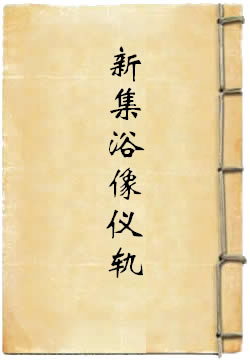 新集浴像仪轨